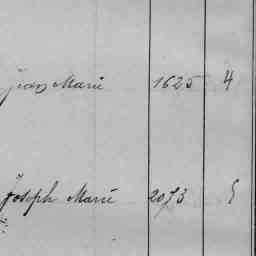 Jean Marie 1625 4
Joseph Marie 2073 5